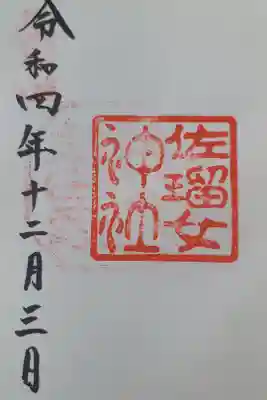 佐瑠女
神社
令和四年十二月三日